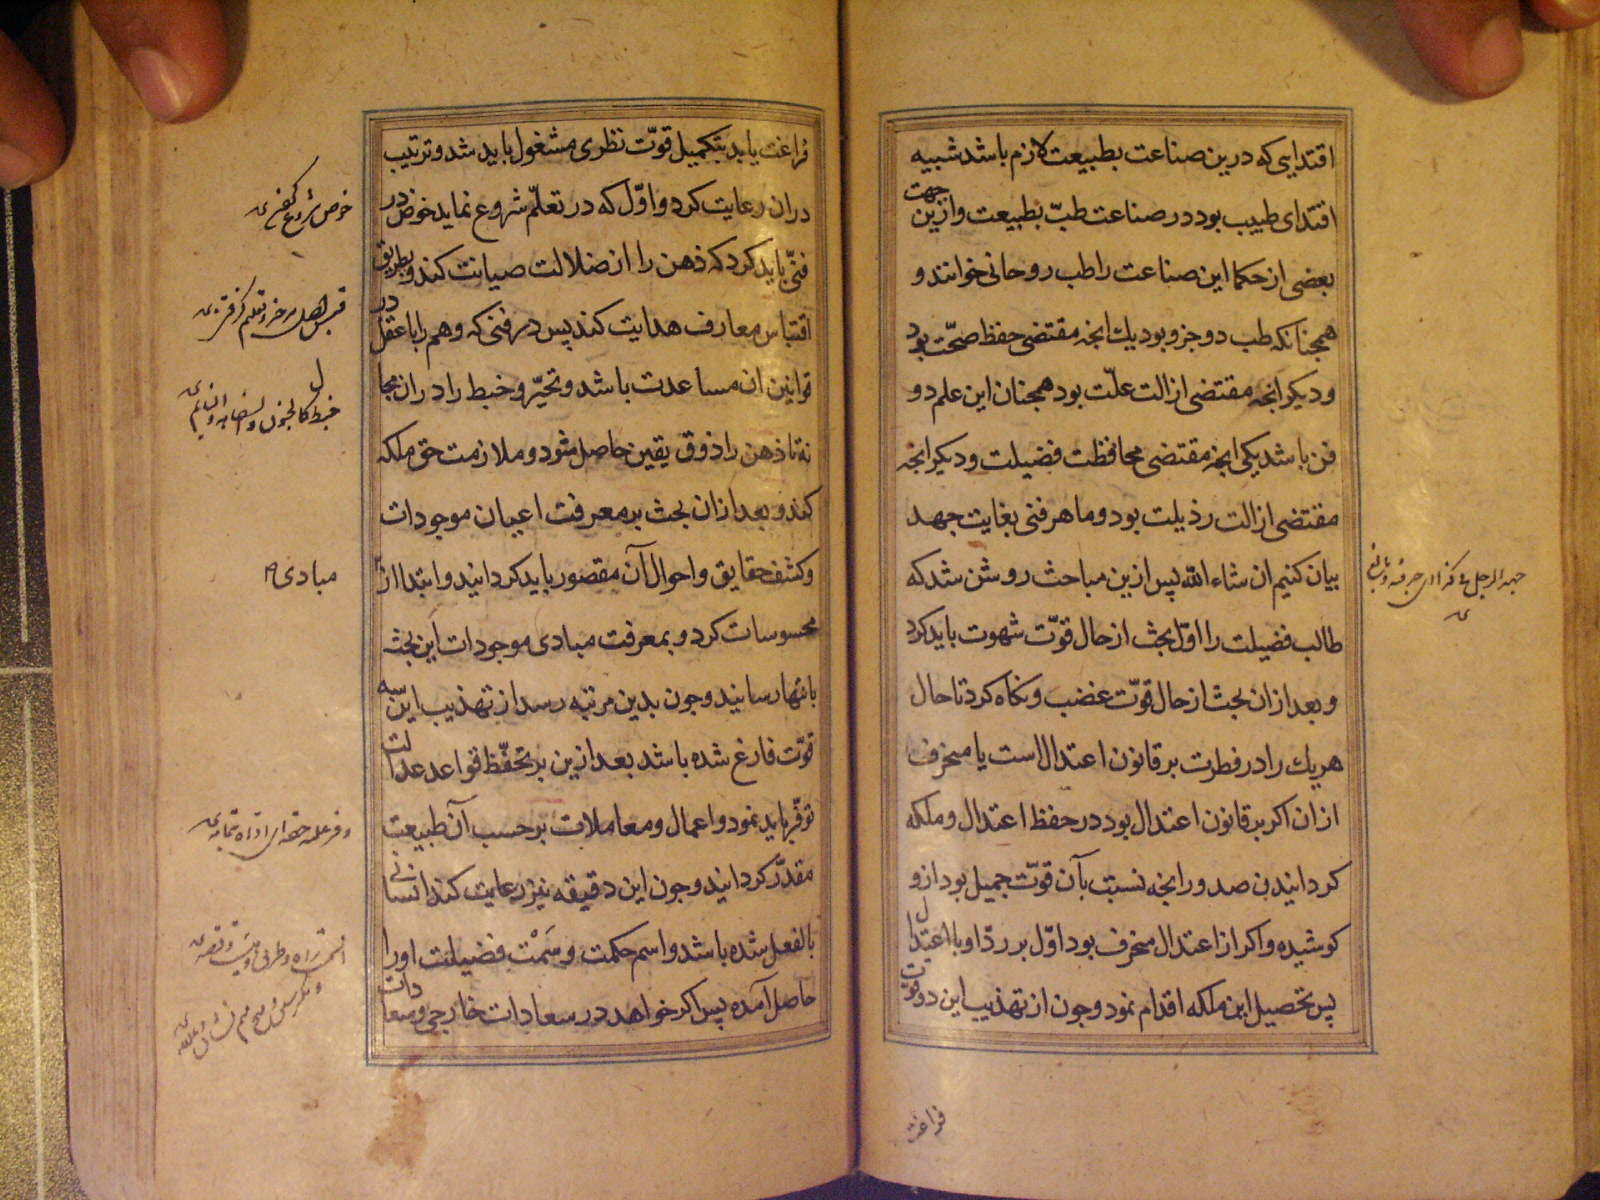 اقتدایی که درین صناعت بطبیعت لازم باشد شبیه
اقتدای طبیب بود در صناعت طبّ بطبیعت و ازین جهت
بعضی از حکما این صناعت را طب روحانی خوانند و
همجنانکه طب دو جزو بود یك انجه مقتضی حفظ صحّت بود
و دیکر انجه مقتضی ازالت علّت بود همجنان این علم دو
فن باشد یکی انجه مقتضی محافظت فضیلت و دیکر انجه
مقتضی ازالت رذیلت بود و ما هر فنی بغایت جهد
بیان کنیم ان شاء الله پس ازین مباحث روشن شد که
طالب فضیلت را اوّل بحث از حال قوّت شهوت باید کرد
و بعد ازان بحث از حال قوّت غضب و نکاه کرد تا حال
هر یك را در فطرت بر قانون اعتدال است یا منحرف
ازان اکر بر قانون اعتدال بود در حفظ اعتدال و ملکه
کردانیدن صدور انجه نسبت بآن قوّت جمیل بود ازو
کوشیده و اکر از اعتدال منحرف بود اوّل بر ردّ او با اعتدال
پس تحصیل این ملکه اقدام نمود و جون از تهذیب این دو قوّت
فراغت
فراغت یابد بتکمیل قوّت نظری مشغول باید شد و ترتیب
دران رعایت کرد و اوّل که در تعلّم شروع نماید خوض در
فنّی باید کرد که ذهن را از ضلالت صیانت کند و بطریق
اقتباس معارف هدایت کند پس در فنی که وهم را با عقل در
قوانین ان مساعدت باشد و تحیّر و خبط را دران مجا
نه تا ذهن را ذوق یقین حاصل شود و ملازمت حق ملکه
کند و بعد ازان بحث بر معرفت اعیان موجودات
و کشف حقایق و احوال آن مقصور باید کردانید و ابتدا از
محسوسات کرد و بمعرفت مبادی موجودات این بحث
بانتها رسانید و جون بدین مرتبه رسد از تهذیب این سه
قوّت فارغ شده باشد بعد ازین بر تحفّظ قواعد عدالت
توفّر باید نمود و اعمال و معاملات بر حسب آن طبیعت
مقدّر کردانید و جون این دقیقه نیز رعایت کند انسانی
بالفعل شده باشد و اسم حکمت و سَمْت فضیلت او را
حاصل آمده پس اکر خواهد در سعادات خارجی و سعادات
خوض شروع
مبادی